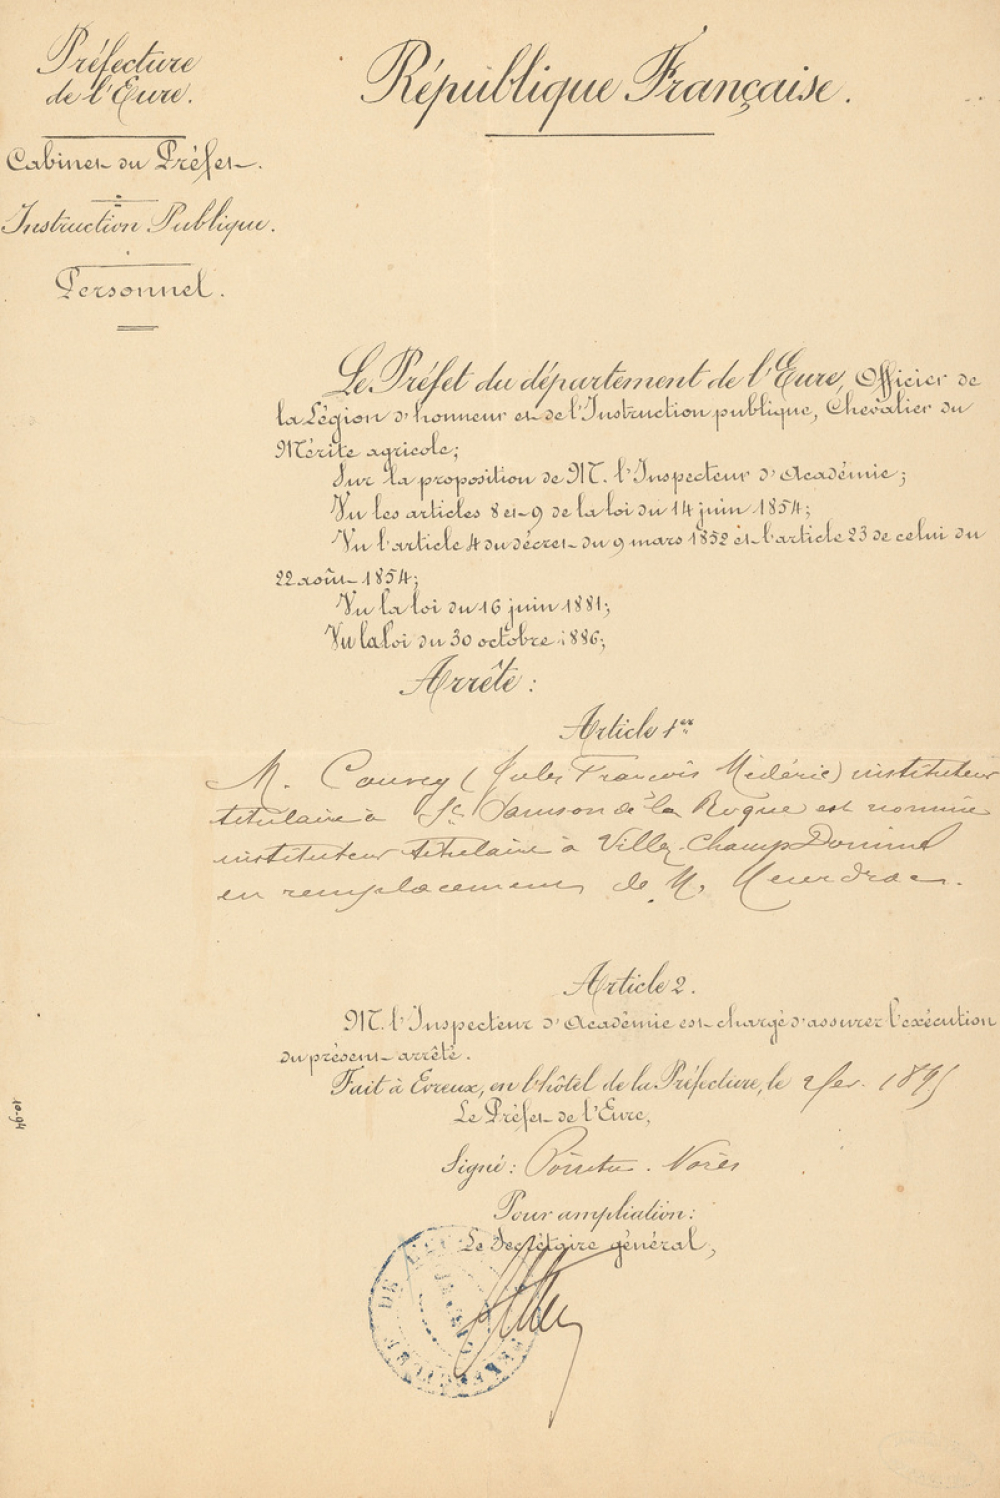 Préfecture
de l'Eure.
République Française.
Cabinet du Préfet.
Instruction Publique.
Personnel.
Le Préfet du département de l'Eure, Officier de
la Légion d'honneur et de l'Instruction publique, Chevalier du
Mérite agricole;
Sur la proposition de M. l'Inspecteur d'Académie;
Vu les articles 8 et 9 de la loi du 14 juin 1854;
Vu l'article 4 du décret du 9 mars 1852 et l'article 23 de celui du
22 août 1854;
Vu la loi du 16 juin 1881;
Vu la loi du 30 octobre 1886;
Arrête:
Article 1er
M. Couvey (Jules François Médéric) instituteur
titulaire à St Samson de la Roque est nommé
instituteur titulaire à Villez-Champ Dominel
en remplacement de M. Meurdrac.
Article 2.
M. l'Inspecteur d'Académie est chargé d'assurer l'exécution
du présent arrêté.
Fait à Evreux, en l'hôtel de la Préfecture, le 2 fev. 1895
Le Préfet de l'Eure,
Signé: Pointu. Norès
Pour ampliation:
Le Secrétaire général,
10-94